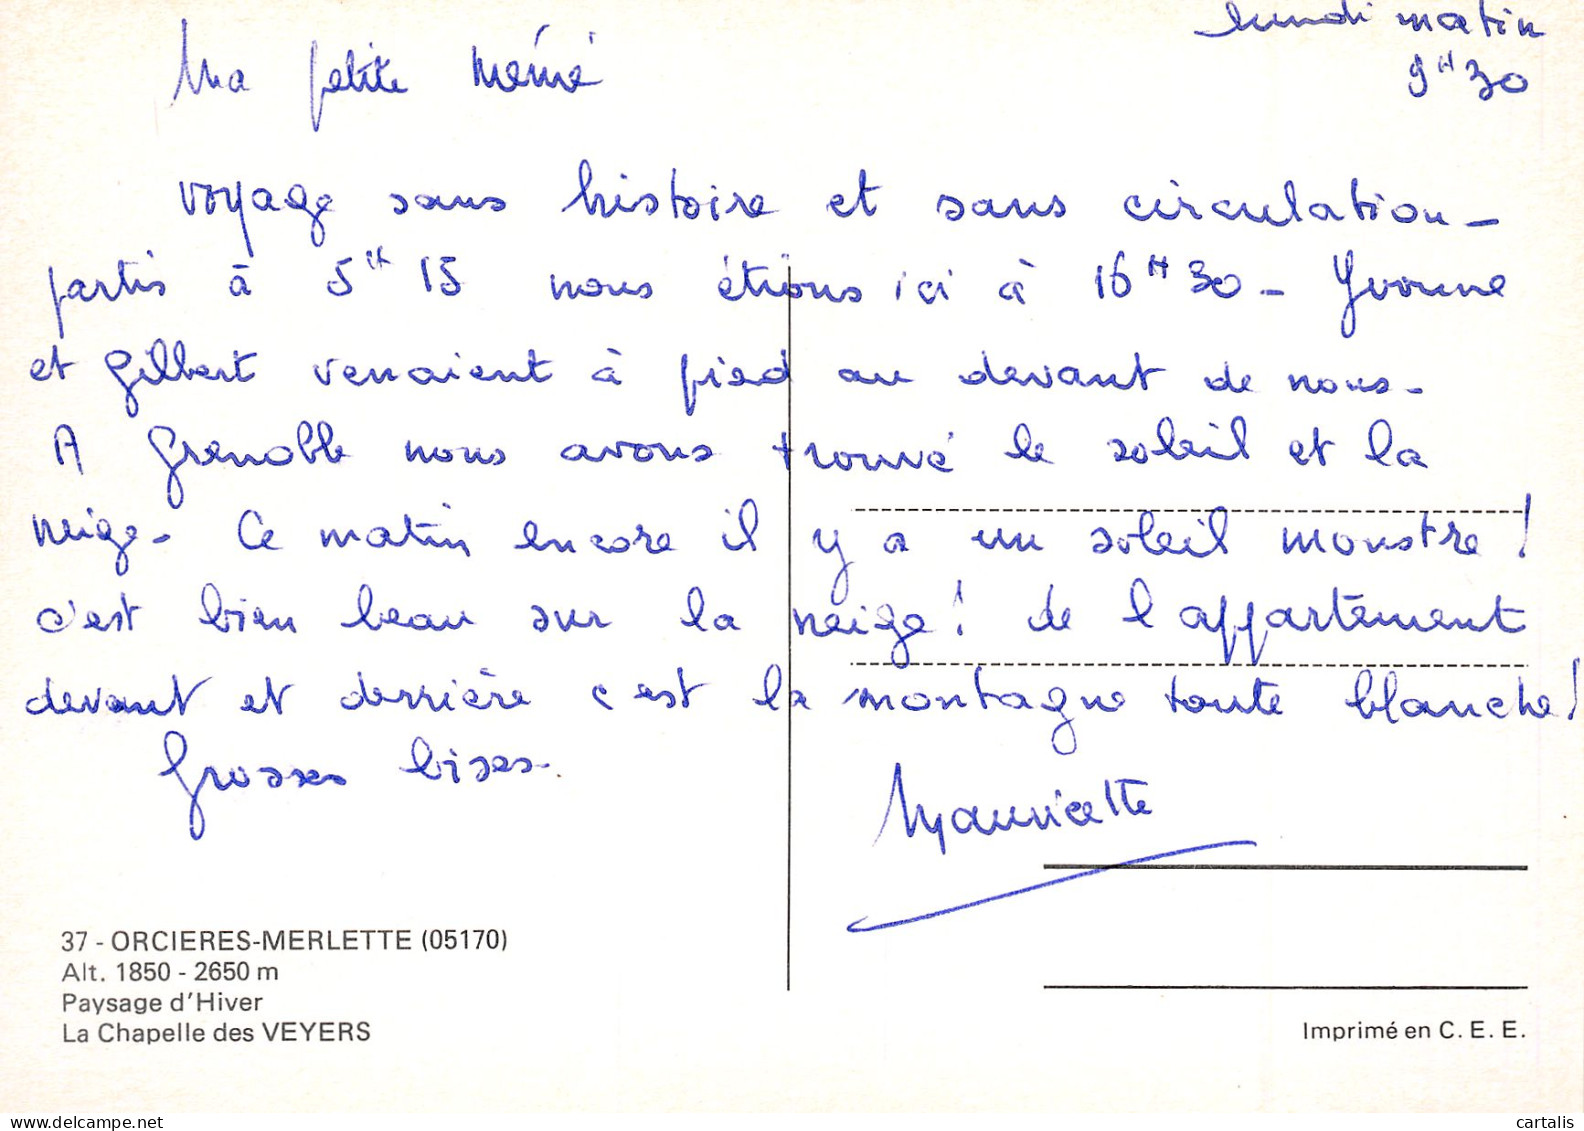 lundi matin
9H30
Ma petite mémé
voyage sans histoire et sans circulation -
partis à 5H15 nous étions ici à 16H30 - Yvonne
et Gilbert venaient à pied au devant de nous -
A Grenoble nous avons trouvé le soleil et la
neige - Ce matin encore il y a un soleil monstre !
c'est bien beau sur la neige ! de l'appartement
devant et derrière c'est la montagne toute blanche !
Grosses bises.
Mauricette
37 - ORCIERES-MERLETTE (05170)
Alt. 1850 - 2650 m
Paysage d'Hiver
La Chapelle des VEYERS
Imprimé en C. E. E.
cartalis